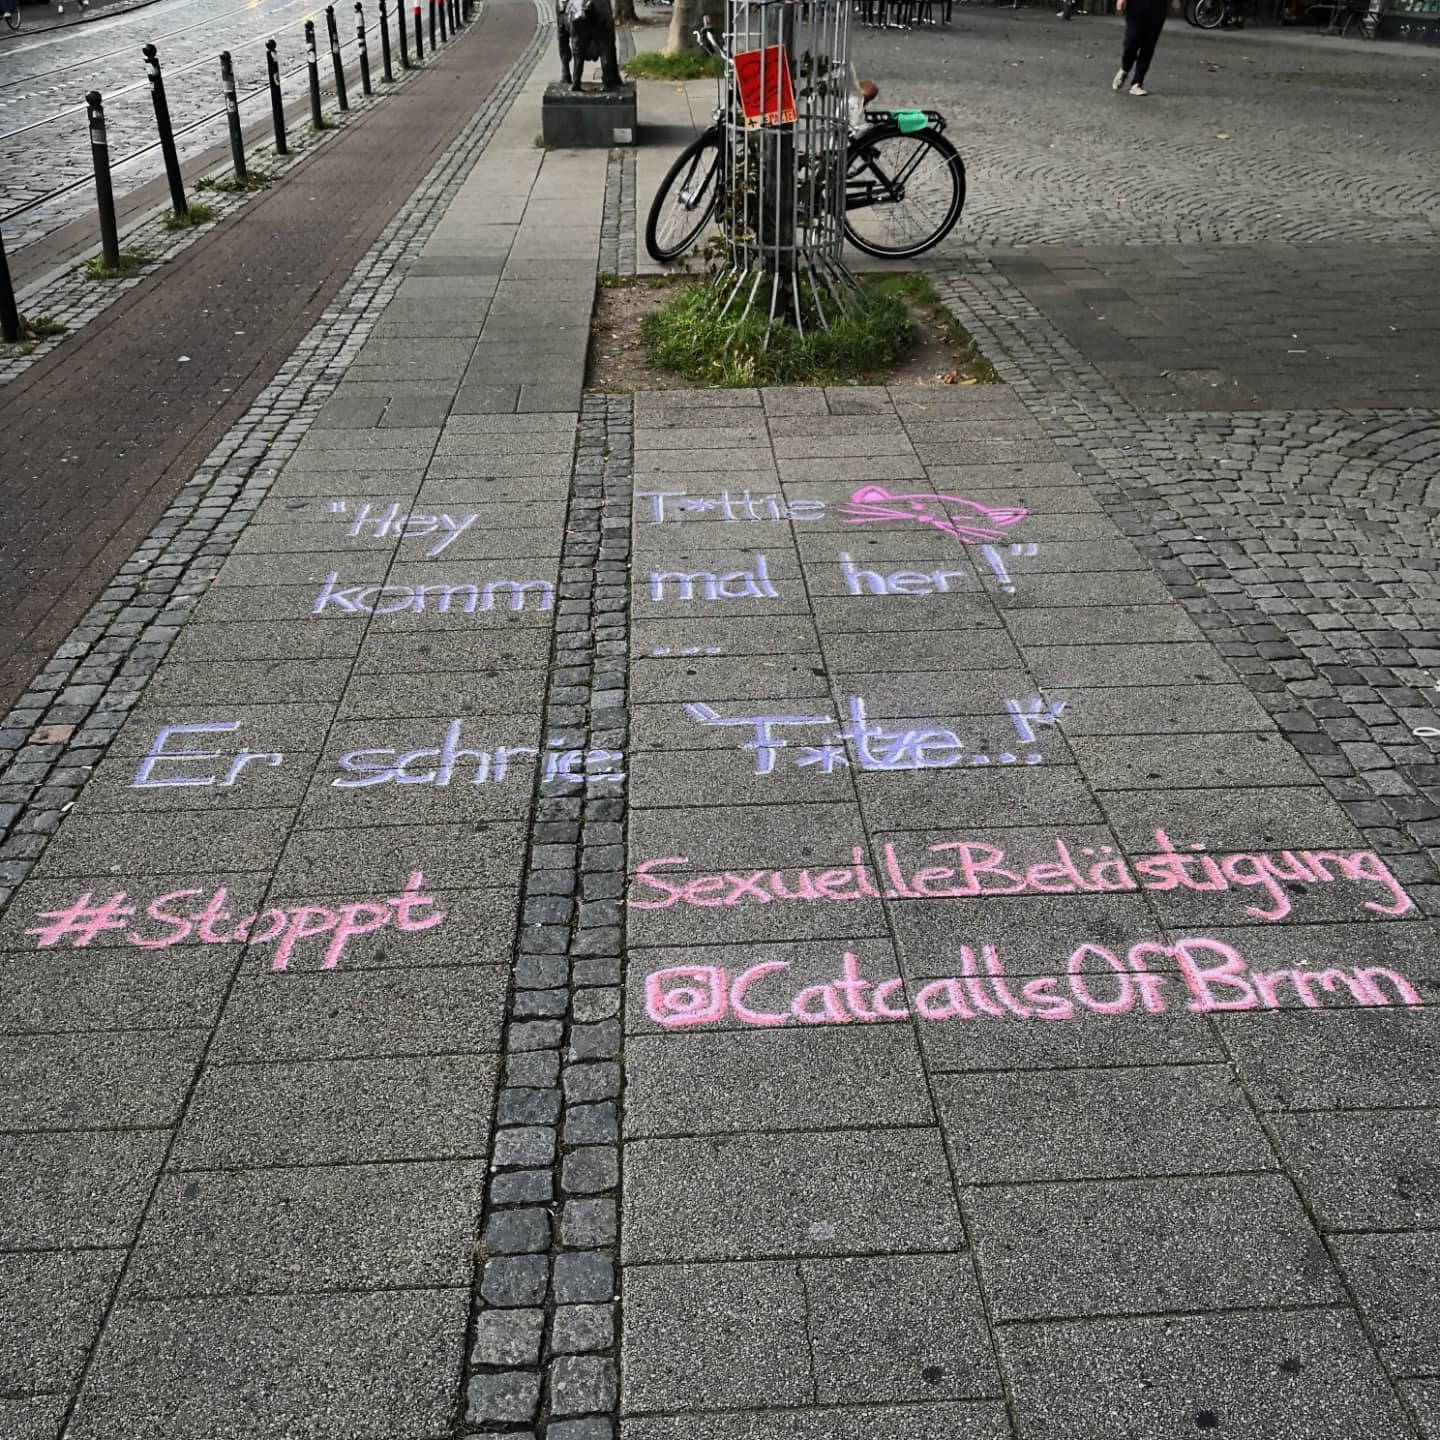 "Hey T*ttie
komm mal her!"
...
Er schrie: "F*tze...!"
#Stoppt SexuelleBelästigung
@CatcallsOfBrmn